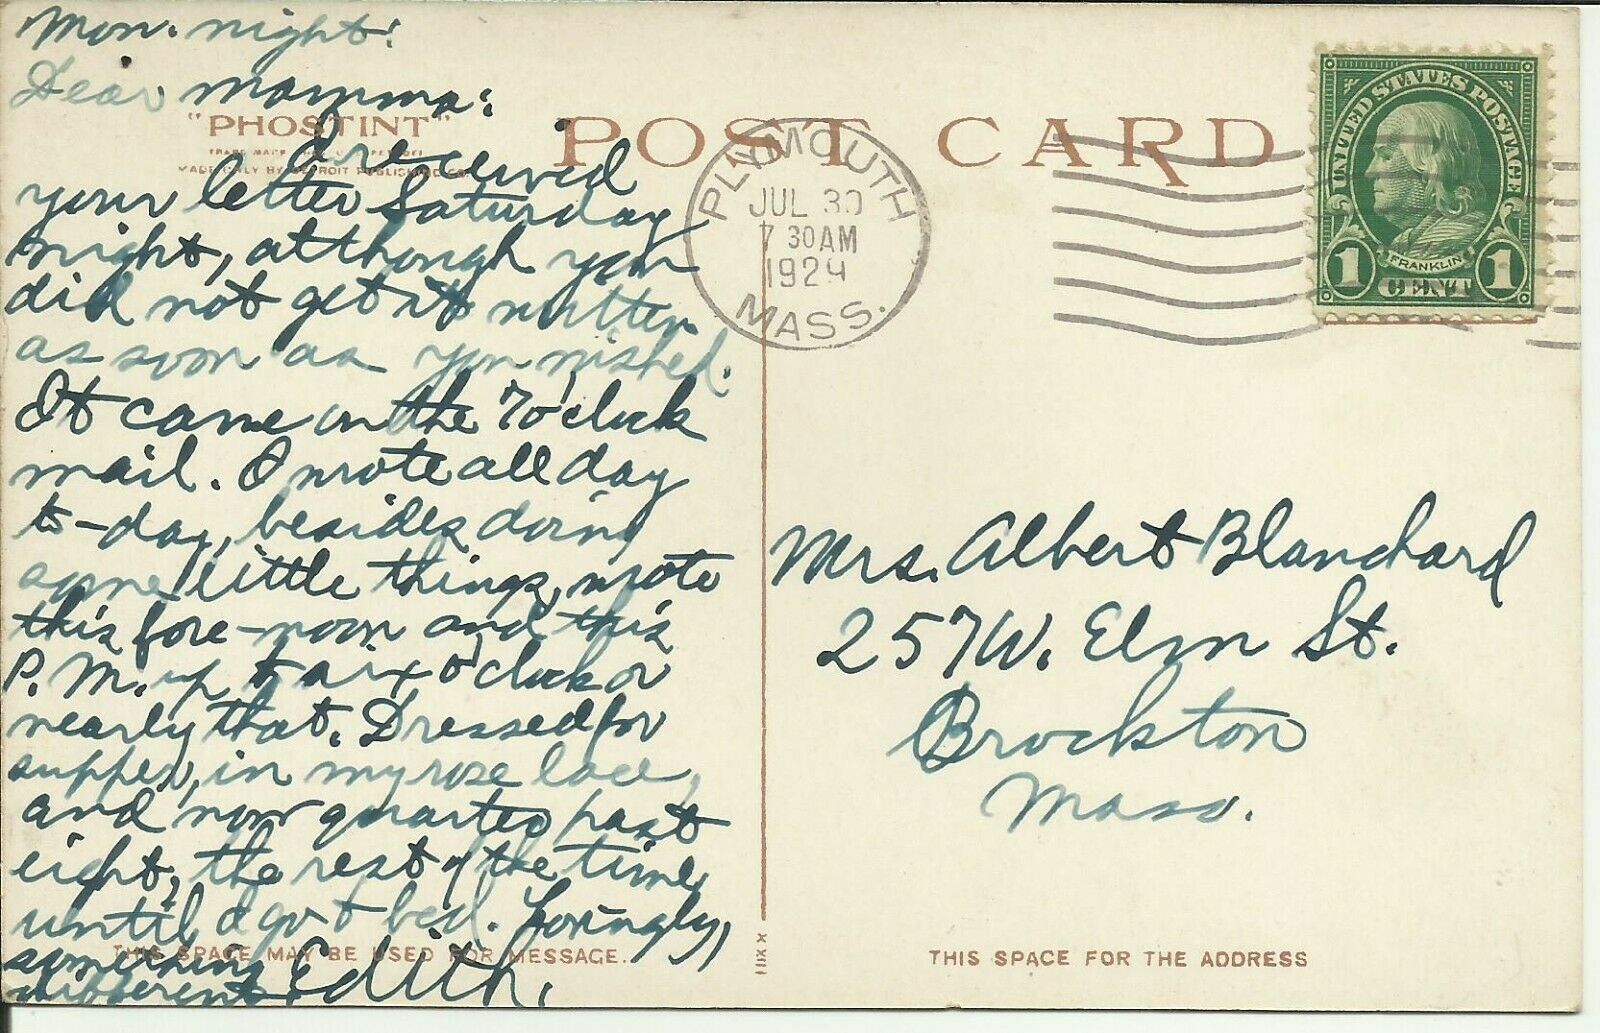 Mon. night.
Dear Mamma:
"PHOSTINT"
POST CARD
MADE ONLY BY DETROIT PUBLISHING CO.
I received
your letter Saturday
night, although you
did not get it written
as soon as you wished.
It came in the 7 o'clock
mail. I wrote all day
to-day, besides doing
some little things, wrote
this fore-noon and this
P.M. up to six o'clock or
nearly that. Dressed for
supper, in my rose lace,
and now quarter past
eight, the rest of the time
until I go to bed. Lovingly,
something Edith.
different
THIS SPACE MAY BE USED FOR MESSAGE.
PLYMOUTH
JUL 30
7 30 AM
1929
MASS.
UNITED STATES POSTAGE
FRANKLIN
1 CENT 1
Mrs. Albert Blanchard
257 W. Elm St.
Brockton
Mass.
THIS SPACE FOR THE ADDRESS